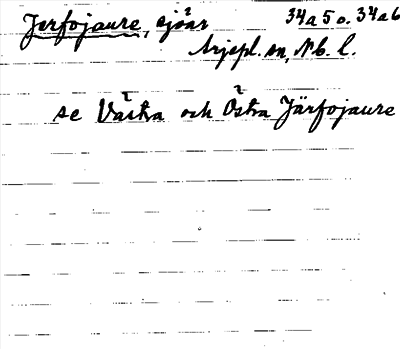 Jerfojaure, sjöar 34a5 o. 34a6
Arjepl. sn, Nb. l.
se Västra och Östra Järfojaure